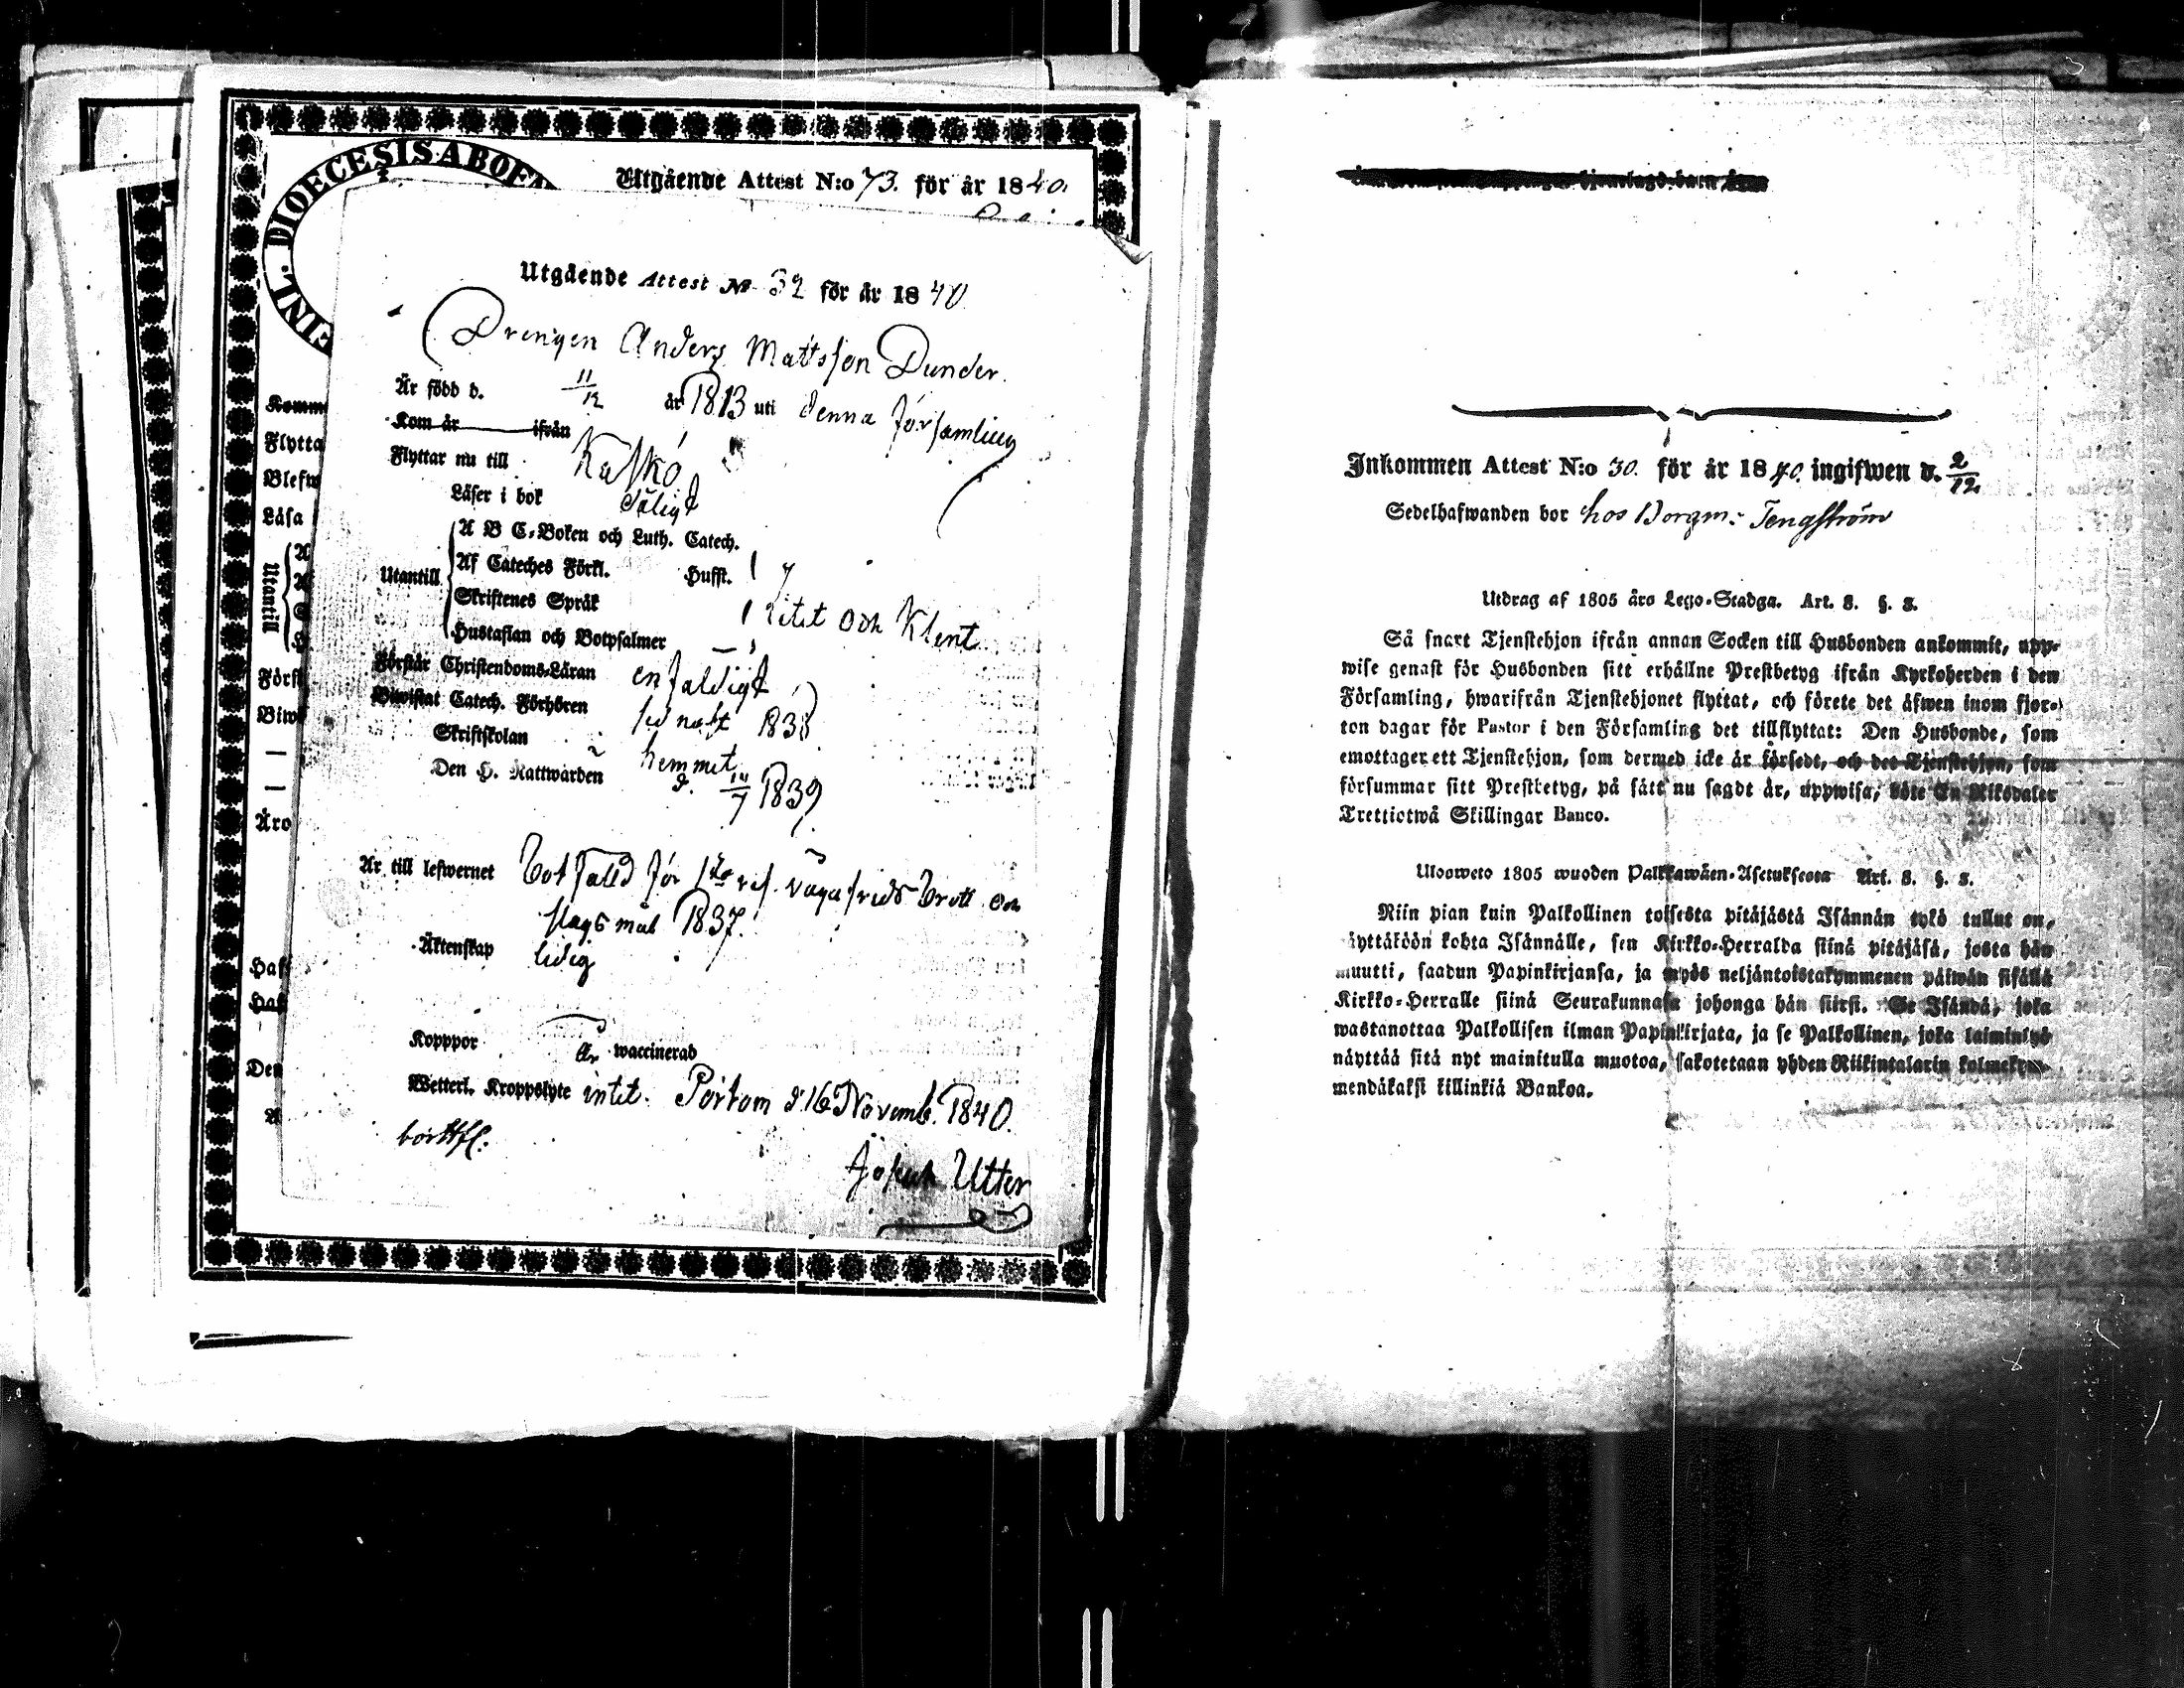 DIOECESIS ABOEN
FINL.
Utgående Attest N:o 73. för år 1840.
Komm
Flytta
Blefw
Läsa
Utantill
Förs
Biw
Äro
Haf
Haf
Den
Utgående Attest No 32 för år 1840
Drengen Anders Mattsson Dunder.
Är född d. 11/12 år 1813 uti denna församling
Kom år ifrån
Flyttar nu till Kaskö
Läser i bok dåligt
Utantill
A B C-Boken och Luth. Catech.
Af Cateches Förkl. Hufst.
Skriftenes Språk litet och klent
Hustaflan och Botpsalmer
Förstår Christendoms-Läran enfaldigt
Biwistat Catech. Förhören sednast 1838
Skriftskolan hemmet
Den H. Nattwarden d. /7 1839
Är till lefwernet Botfälld för 1sta res. vägafrids brott och
slagsmål 1837.
Äktenskap ledig
Kopppor Är waccinerad
Wetterl. Kroppslyte intet. Pörtom d. 16 Novemb. 1840.
borttfl.
Joseph Utter
Inkommen Attest N:o 30. för år 1840. ingifwen d. 2/12
Sedelhafwanden bor hos Borgm: Tengström
Utdrag af 1805 års Lego-Stadga. Art. 8. §. 3.
Så snart Tjenstehjon ifrån annan Socken till Husbonden ankommit, upp-
wise genast för Husbonden sitt erhållne Prestbetyg ifrån Kyrkoherden i den
Församling, hwarifrån Tjenstehjonet flyttat, och förete det äfwen inom fjor-
ton dagar för Pastor i den Församling det tillflyttat: Den Husbonde, som
emottager ett Tjenstehjon, som dermed icke är försedt, och det Tjenstehjon, som
försummar sitt Prestbetyg, på sätt nu sagdt är, uppwisa, böte En Riksdaler
Trettiotwå Skillingar Banco.
Uloosweto 1805 wuoden Palkkawäen-Asetuksesta Art. 8. §. 3.
Niin pian kuin Palkollinen toisesta pitäjästä Isännän tykö tullut on,
näyttäköön kohta Isännälle, sen Kirkko-Herralda siinä pitäjäsä, josta hän
muutti, saadun Papinkirjansa, ja myös neljäntoistakymmenen päiwän sisällä
Kirkko-Herralle siinä Seurakunnasa johonga hän siirsi. Se Isändä, joka
wastanottaa Palkollisen ilman Papinkirjata, ja se Palkollinen, joka laiminlyö
näyttää sitä nyt mainitulla muotoa, sakotetaan yhden Riikintalarin kolmekym-
mendäkaksi killinkiä Bankoa.